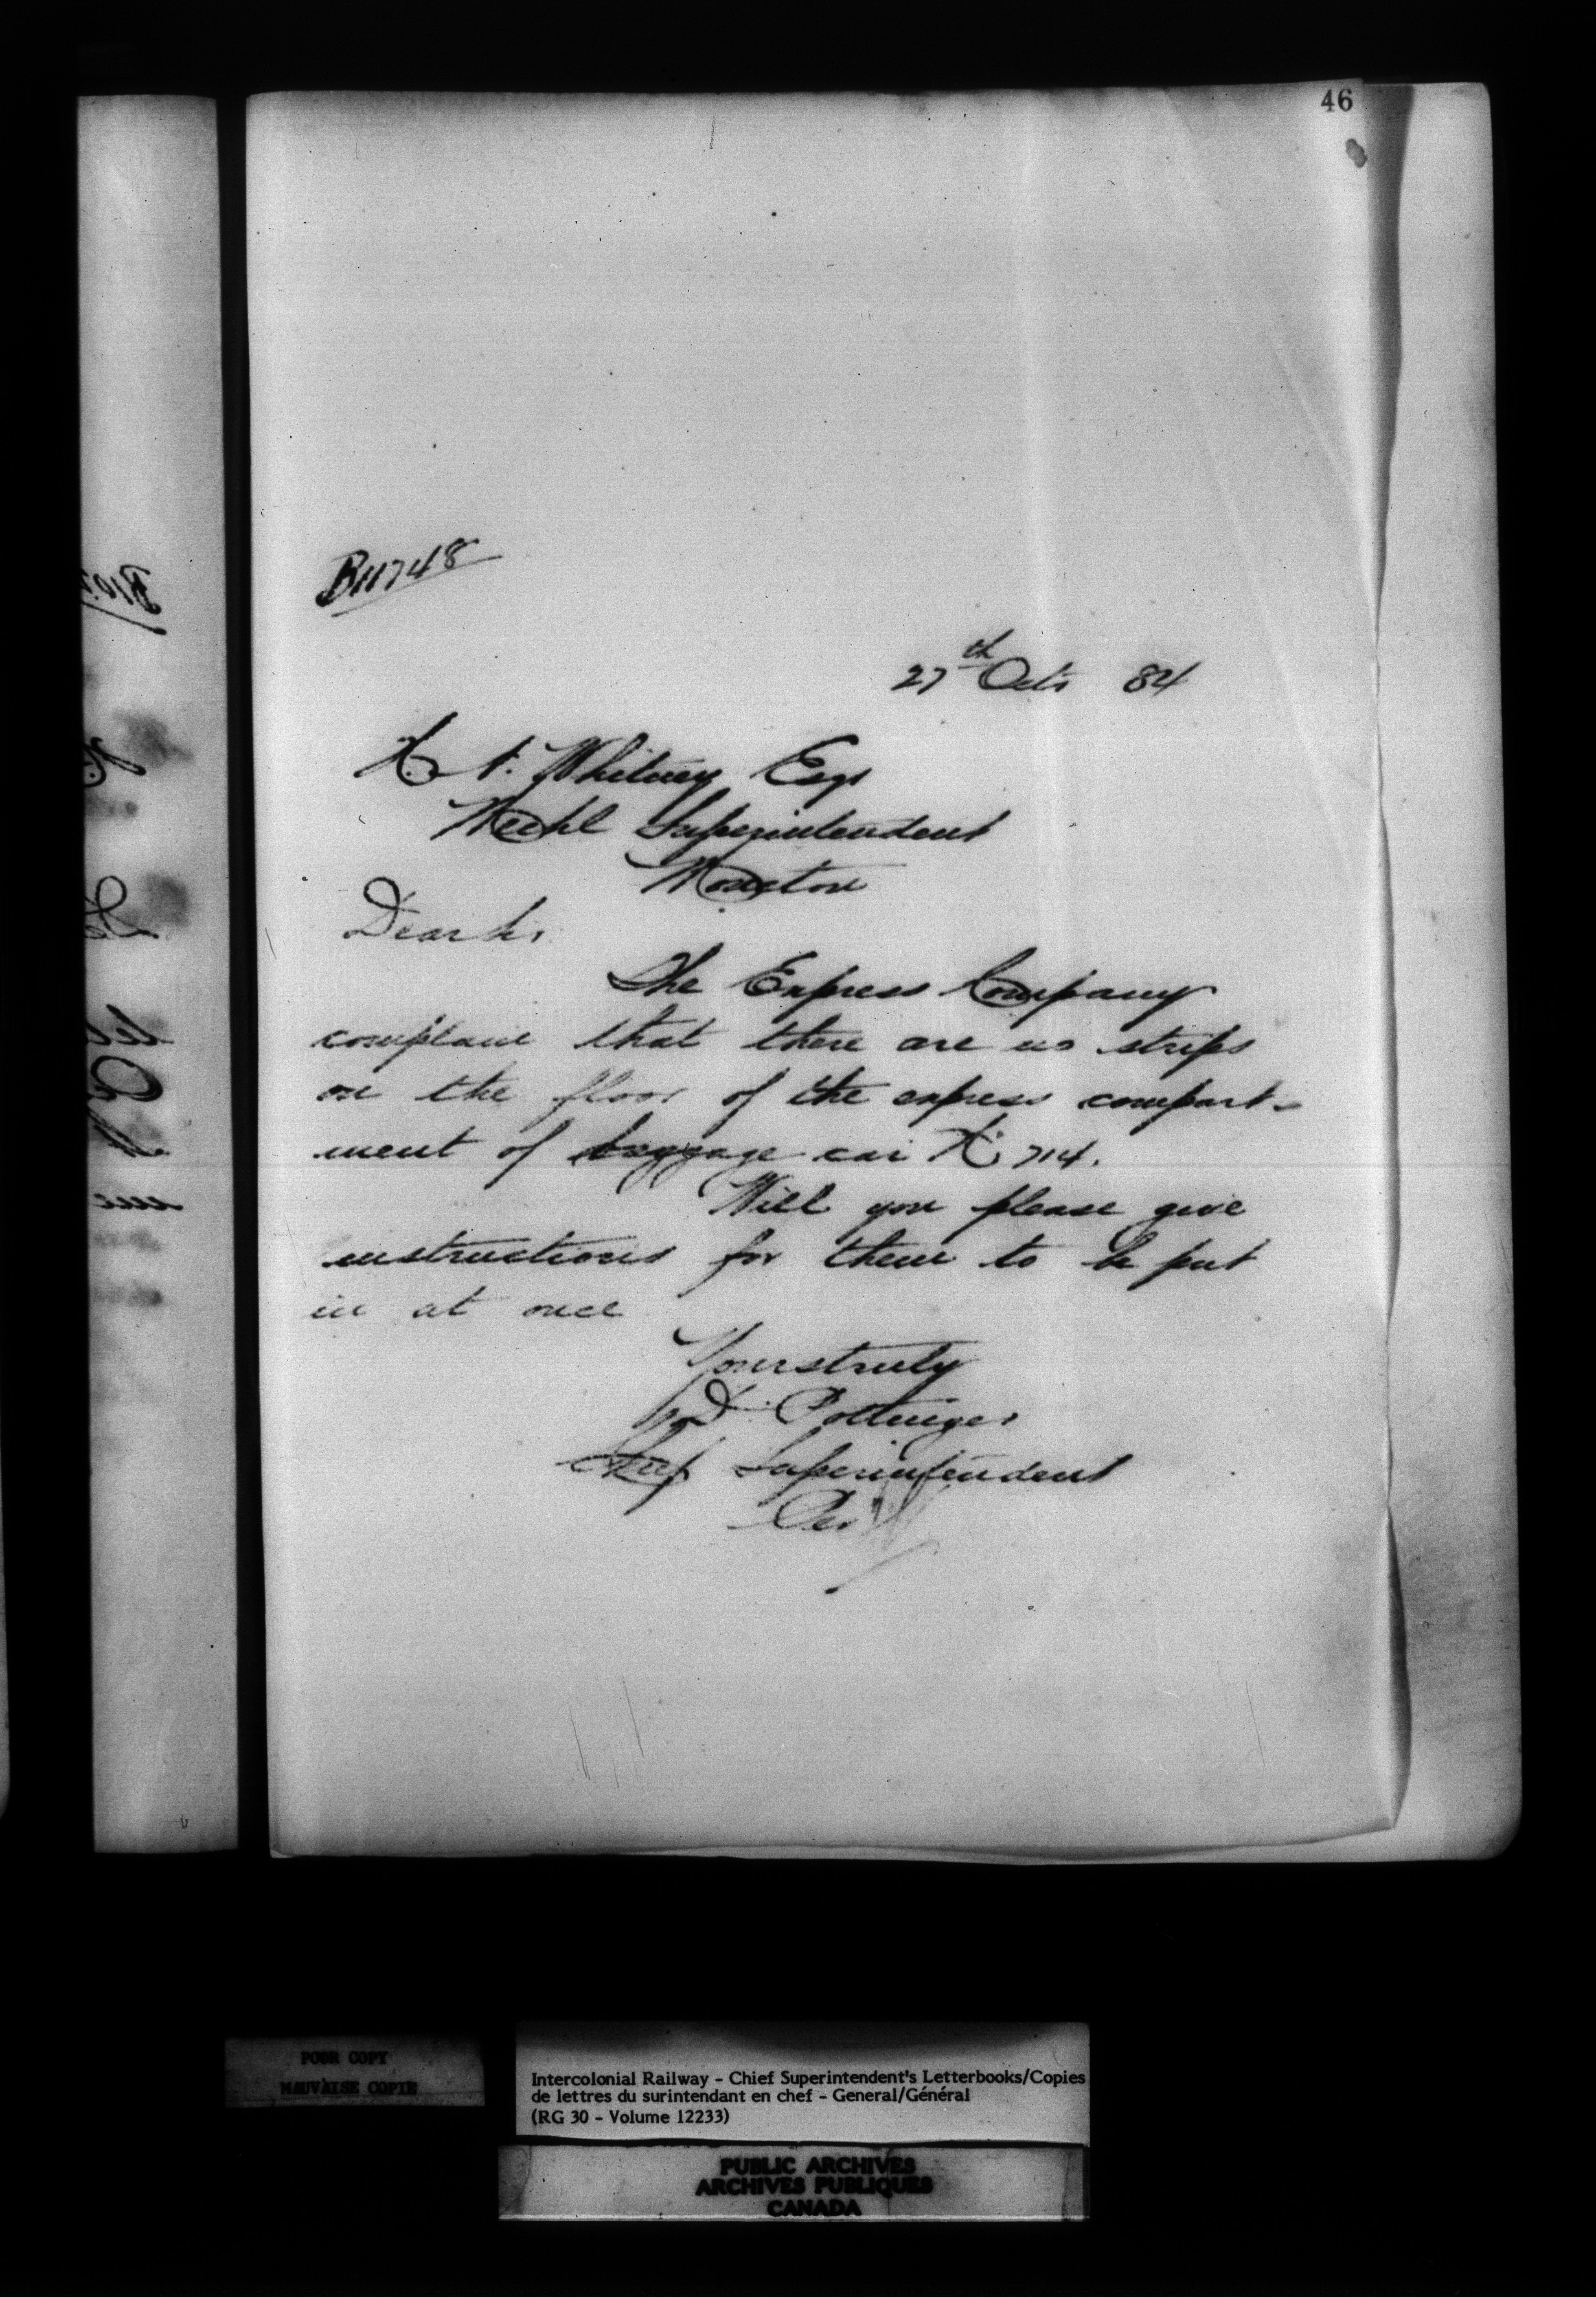 46
B11748
27th Octr 84
H. A. Whitney Esqr
Mechl Superintendent
Moncton
Dear Sir
The Express Company
complain that there are no strips
on the floor of the express compart-
ment of baggage car No 714.
Will you please give
instructions for them to be put
in at once
Yours truly
D Pottinger
Chief Superintendent
Per
POOR COPY
MAUVAISE COPIE
Intercolonial Railway - Chief Superintendent's Letterbooks/Copies
de lettres du surintendant en chef - General/Général
(RG 30 - Volume 12233)
PUBLIC ARCHIVES
ARCHIVES PUBLIQUES
CANADA